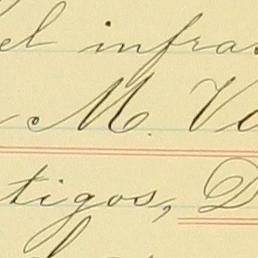 el infras
M. V
tigos, D